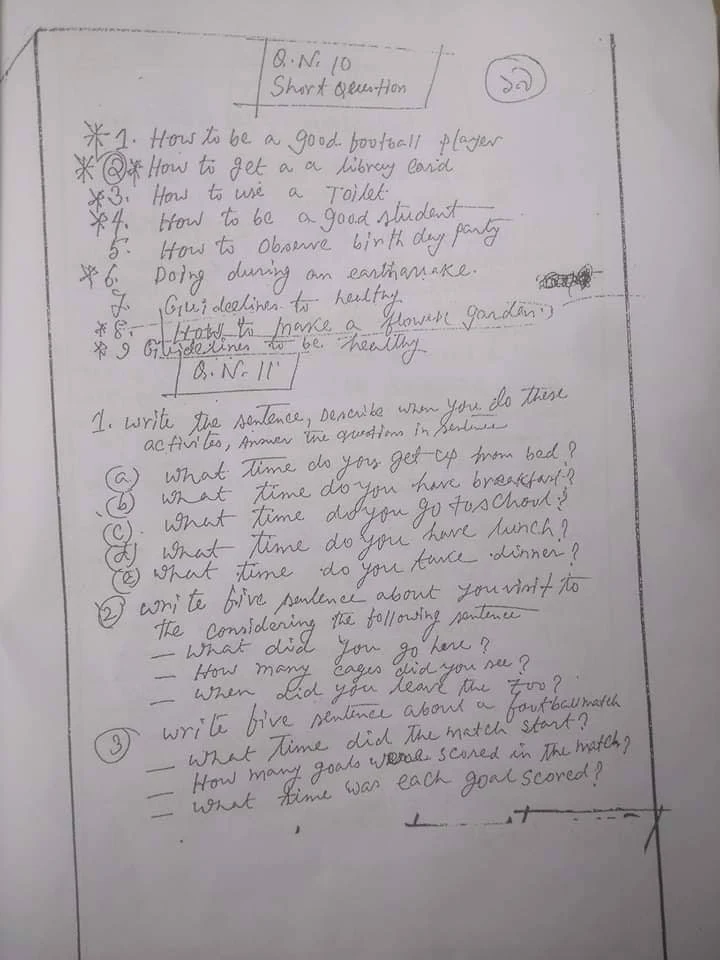 Q.N. 10
Short Question
১৯
* 1. How to be a good football player
* 2 * How to get a a library Card
* 3. How to use a Toilet
* 4. How to be a good student
5. How to observe birth day party
* 6. Doing during an earthquake.
7. Guideelines to healthy
* 8. How to make a flower garden
* 9 Guidelines to be healthy
Q.N. 11
1. Write the sentence, Describe when you do these
activites, Answer the question in sentence
(a) What time do you get up from bed?
(b) What time do you have breakfast?
(c) What time do you go to school?
(d) What time do you have lunch?
(e) What time do you take dinner?
2 Write five sentence about you visit to
the considering the following sentence
— What did you go here?
— How many cages did you see?
— When did you leave the zoo?
3 Write five sentence about a football match
— What time did the match start?
— How many goals were scored in the match?
— What time was each goal scored?